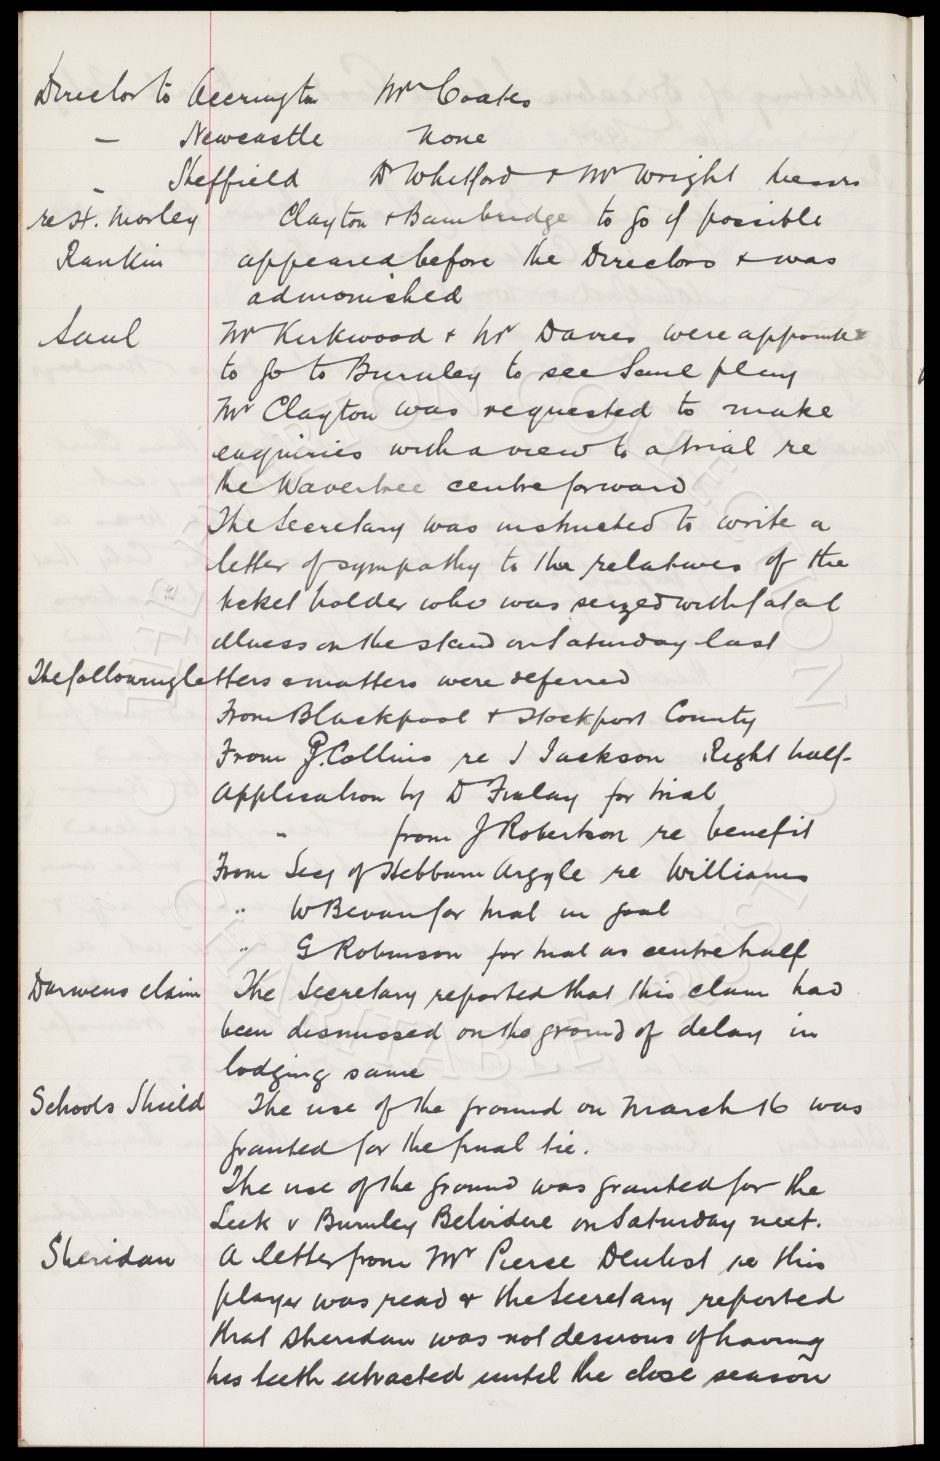 Director to Accrington Mr Coates
– Newcastle None
– Sheffield Dr Whitford & Mr Wright Messrs
re H. Morley Clayton & Bainbridge to go if possible
Rankin appeared before the Directors & was
admonished
Saul Mr Kirkwood & Mr Davies were appointed
to go to Burnley to see Saul play
Mr Clayton was requested to make
enquiries with a view to a trial re
the Wavertree centre forward
The Secretary was instructed to write a
letter of sympathy to the relatives of the
ticket holder who was seized with fatal
illness on the stand on Saturday last
The following letters & matters were deferred
From Blackpool & Stockport County
From J. Collins re J Jackson Right half-
Application by D Finlay for trial
" from J Robertson re benefit
From Secy of Hebburn Argyle re Williams
" W Bevan for trial in goal
" G Robinson for trial as centre half
Darwens claim The Secretary reported that this claim had
been dismissed on the ground of delay in
lodging same
Schools Shield The use of the ground on March 16 was
granted for the final tie.
The use of the ground was granted for the
Leek v Burnley Belvidere on Saturday next.
Sheridan A letter from Mr Pierse Dentist re this
player was read & the Secretary reported
that Sheridan was not desirous of having
his teeth extracted until the close season